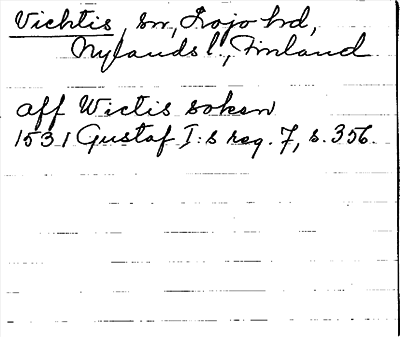 Vichtis, sn, Lojo hd,
Nylands l., Finland
aff Wictis soken
1531 Gustaf I:s reg. 7, s. 356.